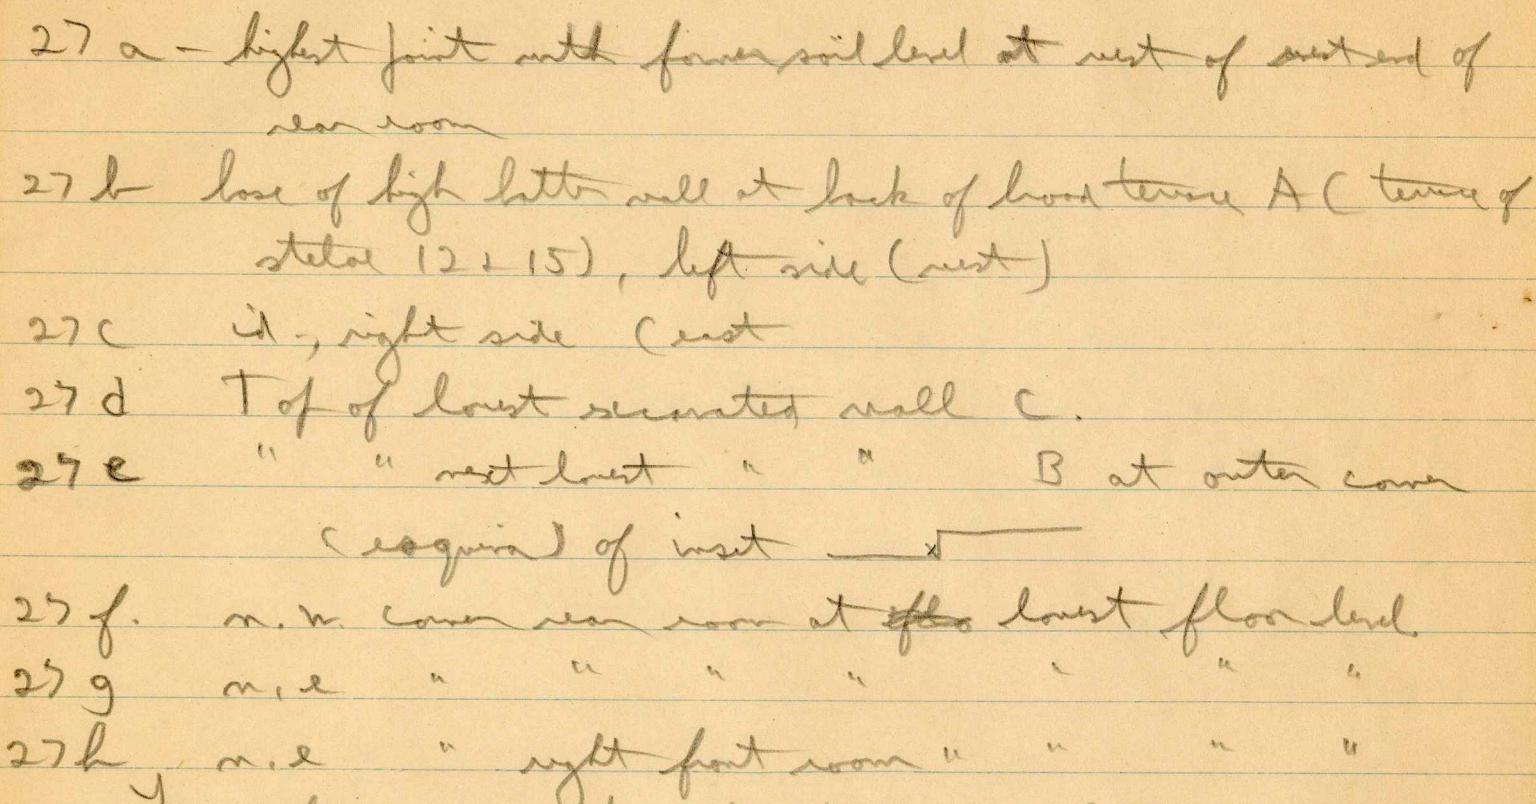 27 a - highest point with former soil level at west of west end of
rear room
27 b base of high batter wall at back of broad terrace A (terrace of
stelae 12 + 15), left side (west)
27 c id-, right side (east
27 d Top of lowest excavated wall C.
27 e " " next lowest " " B at outer corner
(esquina) of inset
27 f. n.w. corner rear room at lowest floor level.
27 g n.e " " " " " " "
27 h n.e " right front room " " " "